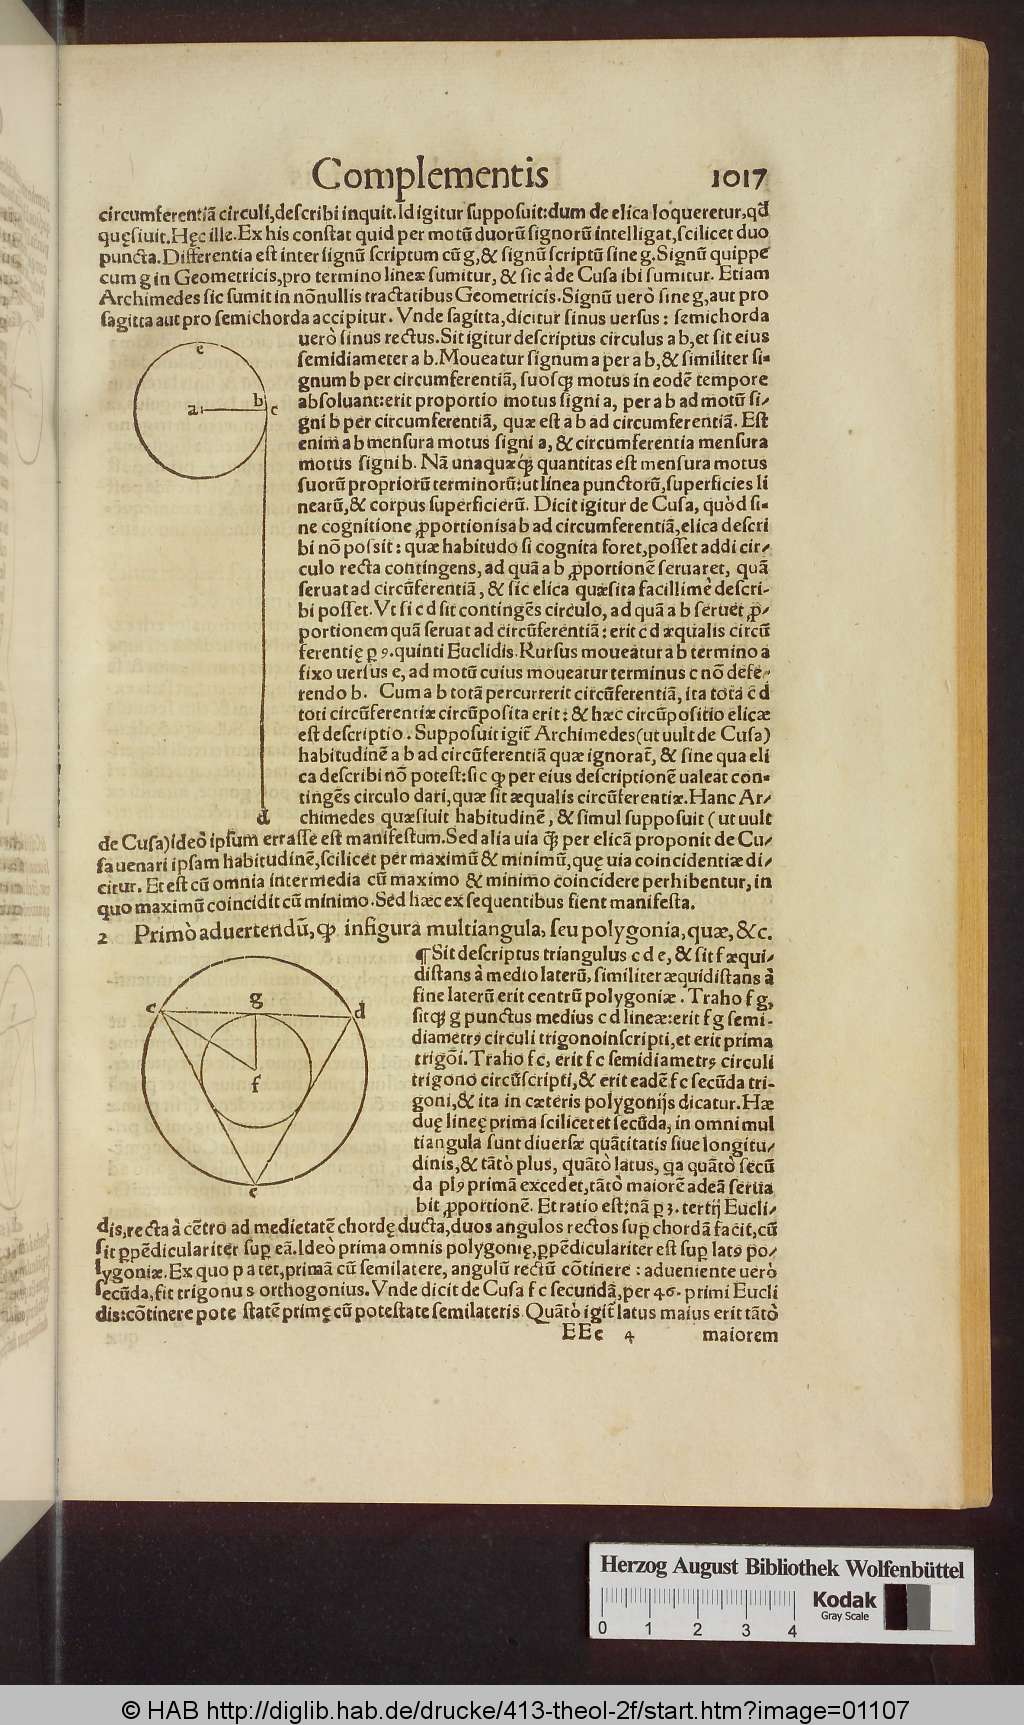 Complementis 1017
circumferentiã circuli, deſcribi inquit. Id igitur ſuppoſuit: dum de elica loqueretur, qđ
quęſiuit. Hęc ille. Ex his conſtat quid per motũ duorũ ſignorũ intelligat, ſcilicet duo
puncta. Differentia eſt inter ſignũ ſcriptum cũ g, & ſignũ ſcriptũ ſine g. Signũ quippe
cum g in Geometricis, pro termino lineæ ſumitur, & ſic à de Cuſa ibi ſumitur. Etiam
Archimedes ſic ſumit in nõnullis tractatibus Geometricis. Signũ uerò ſine g, aut pro
ſagitta aut pro ſemichorda accipitur. Vnde ſagitta, dicitur ſinus uerſus: ſemichorda
uerò ſinus rectus. Sit igitur deſcriptus circulus a b, et ſit eius
ſemidiameter a b. Moueatur ſignum a per a b, & ſimiliter ſi-
gnum b per circumferentiã, ſuoſq́ꝫ motus in eodẽ tempore
abſoluant: erit proportio motus ſigni a, per a b ad motũ ſi-
gni b per circumferentiã, quæ eſt a b ad circumferentiã. Eſt
enim a b menſura motus ſigni a, & circumferentia menſura
motus ſigni b. Nã unaquæq́ꝫ quantitas eſt menſura motus
ſuorũ propriorũ terminorũ: ut linea punctorũ, ſuperficies li
nearũ, & corpus ſuperficierũ. Dicit igitur de Cuſa, quòd ſi-
ne cognitione ꝓportionis a b ad circumferentiã, elica deſcri
bi nõ poſsit: quæ habitudo ſi cognita foret, poſſet addi cir-
culo recta contingens, ad quã a b ꝓportionẽ ſeruaret, quã
ſeruat ad circũferentiã, & ſic elica quæſita facillimè deſcri-
bi poſſet. Vt ſi c d ſit contingẽs circulo, ad quã a b ſeruet ꝓ-
portionem quã ſeruat ad circũferentiã: erit c d æqualis circũ
ferentię ꝑ 9. quinti Euclidis. Rurſus moueatur a b termino a
fixo uerſus e, ad motũ cuius moueatur terminus c nõ defe-
rendo b. Cum a b totã percurrerit circũferentiã, ita tota c d
toti circũferentiæ circũpoſita erit: & hæc circũpoſitio elicæ
eſt deſcriptio. Suppoſuit igit̃ Archimedes (ut uult de Cuſa)
habitudinẽ a b ad circũferentiã quæ ignorat̃, & ſine qua eli
ca deſcribi nõ poteſt: ſic ꝙ per eius deſcriptionẽ ualeat con-
tingẽs circulo dari, quæ ſit æqualis circũferentiæ. Hanc Ar-
chimedes quæſiuit habitudinẽ, & ſimul ſuppoſuit (ut uult
de Cuſa) ideò ipſum erraſſe eſt manifeſtum. Sed alia uia q̃ꝫ per elicã proponit de Cu-
ſa uenari ipſam habitudinẽ, ſcilicet per maximũ & minimũ, quę uia coincidentiæ di-
citur. Et eſt cũ omnia intermedia cũ maximo & minimo coincidere perhibentur, in
quo maximũ coincidit cũ minimo. Sed hæc ex ſequentibus fient manifeſta.
e
a
b
c
d
2 Primò aduertendũ, ꝙ in figura multiangula, ſeu polygonia, quæ, &c.
¶ Sit deſcriptus triangulus c d e, & ſit f æqui-
diſtans à medio laterũ, ſimiliter æquidiſtans à
fine laterũ erit centrũ polygoniæ. Traho f g,
ſitq́ꝫ g punctus medius c d lineæ: erit f g ſemi-
diametrꝰ circuli trigono inſcripti, et erit prima
trigõi. Traho f c, erit f c ſemidiametrꝰ circuli
trigono circũſcripti, & erit eadẽ f c ſecũda tri-
goni, & ita in cæteris polygonijs dicatur. Hæ
duę lineę prima ſcilicet et ſecũda, in omni mul
tiangula ſunt diuerſæ quãtitatis ſiue longitu-
dinis, & tãtò plus, quãtò latus, q̃a quãtò ſecũ
da plꝰ primã excedet, tãtò maiorẽ ad eã ſerua
bit ꝓportionẽ. Et ratio eſt: nã ꝑ 3. tertij Eucli-
dis, recta à cẽtro ad medietatẽ chordę ducta, duos angulos rectos ſuꝑ chordã facit, cũ
ſit ꝑpẽdiculariter ſuꝑ eã. Ideò prima omnis polygonię, ꝑpẽdiculariter eſt ſuꝑ latꝰ po-
lygoniæ. Ex quo patet, primã cũ ſemilatere, angulũ rectũ cõtinere: adueniente uerò
ſecũda, fit trigonus orthogonius. Vnde dicit de Cuſa f c ſecundã, per 46. primi Eucli
dis: cõtinere pote ſtatẽ primę cũ poteſtate ſemilateris. Quãtò igit̃ latus maius erit tãtò
c
g
d
f
e
EEe 4 maiorem
Herzog August Bibliothek Wolfenbüttel
0 1 2 3 4
Kodak
Gray Scale
© HAB http://diglib.hab.de/drucke/413-theol-2f/start.htm?image=01107